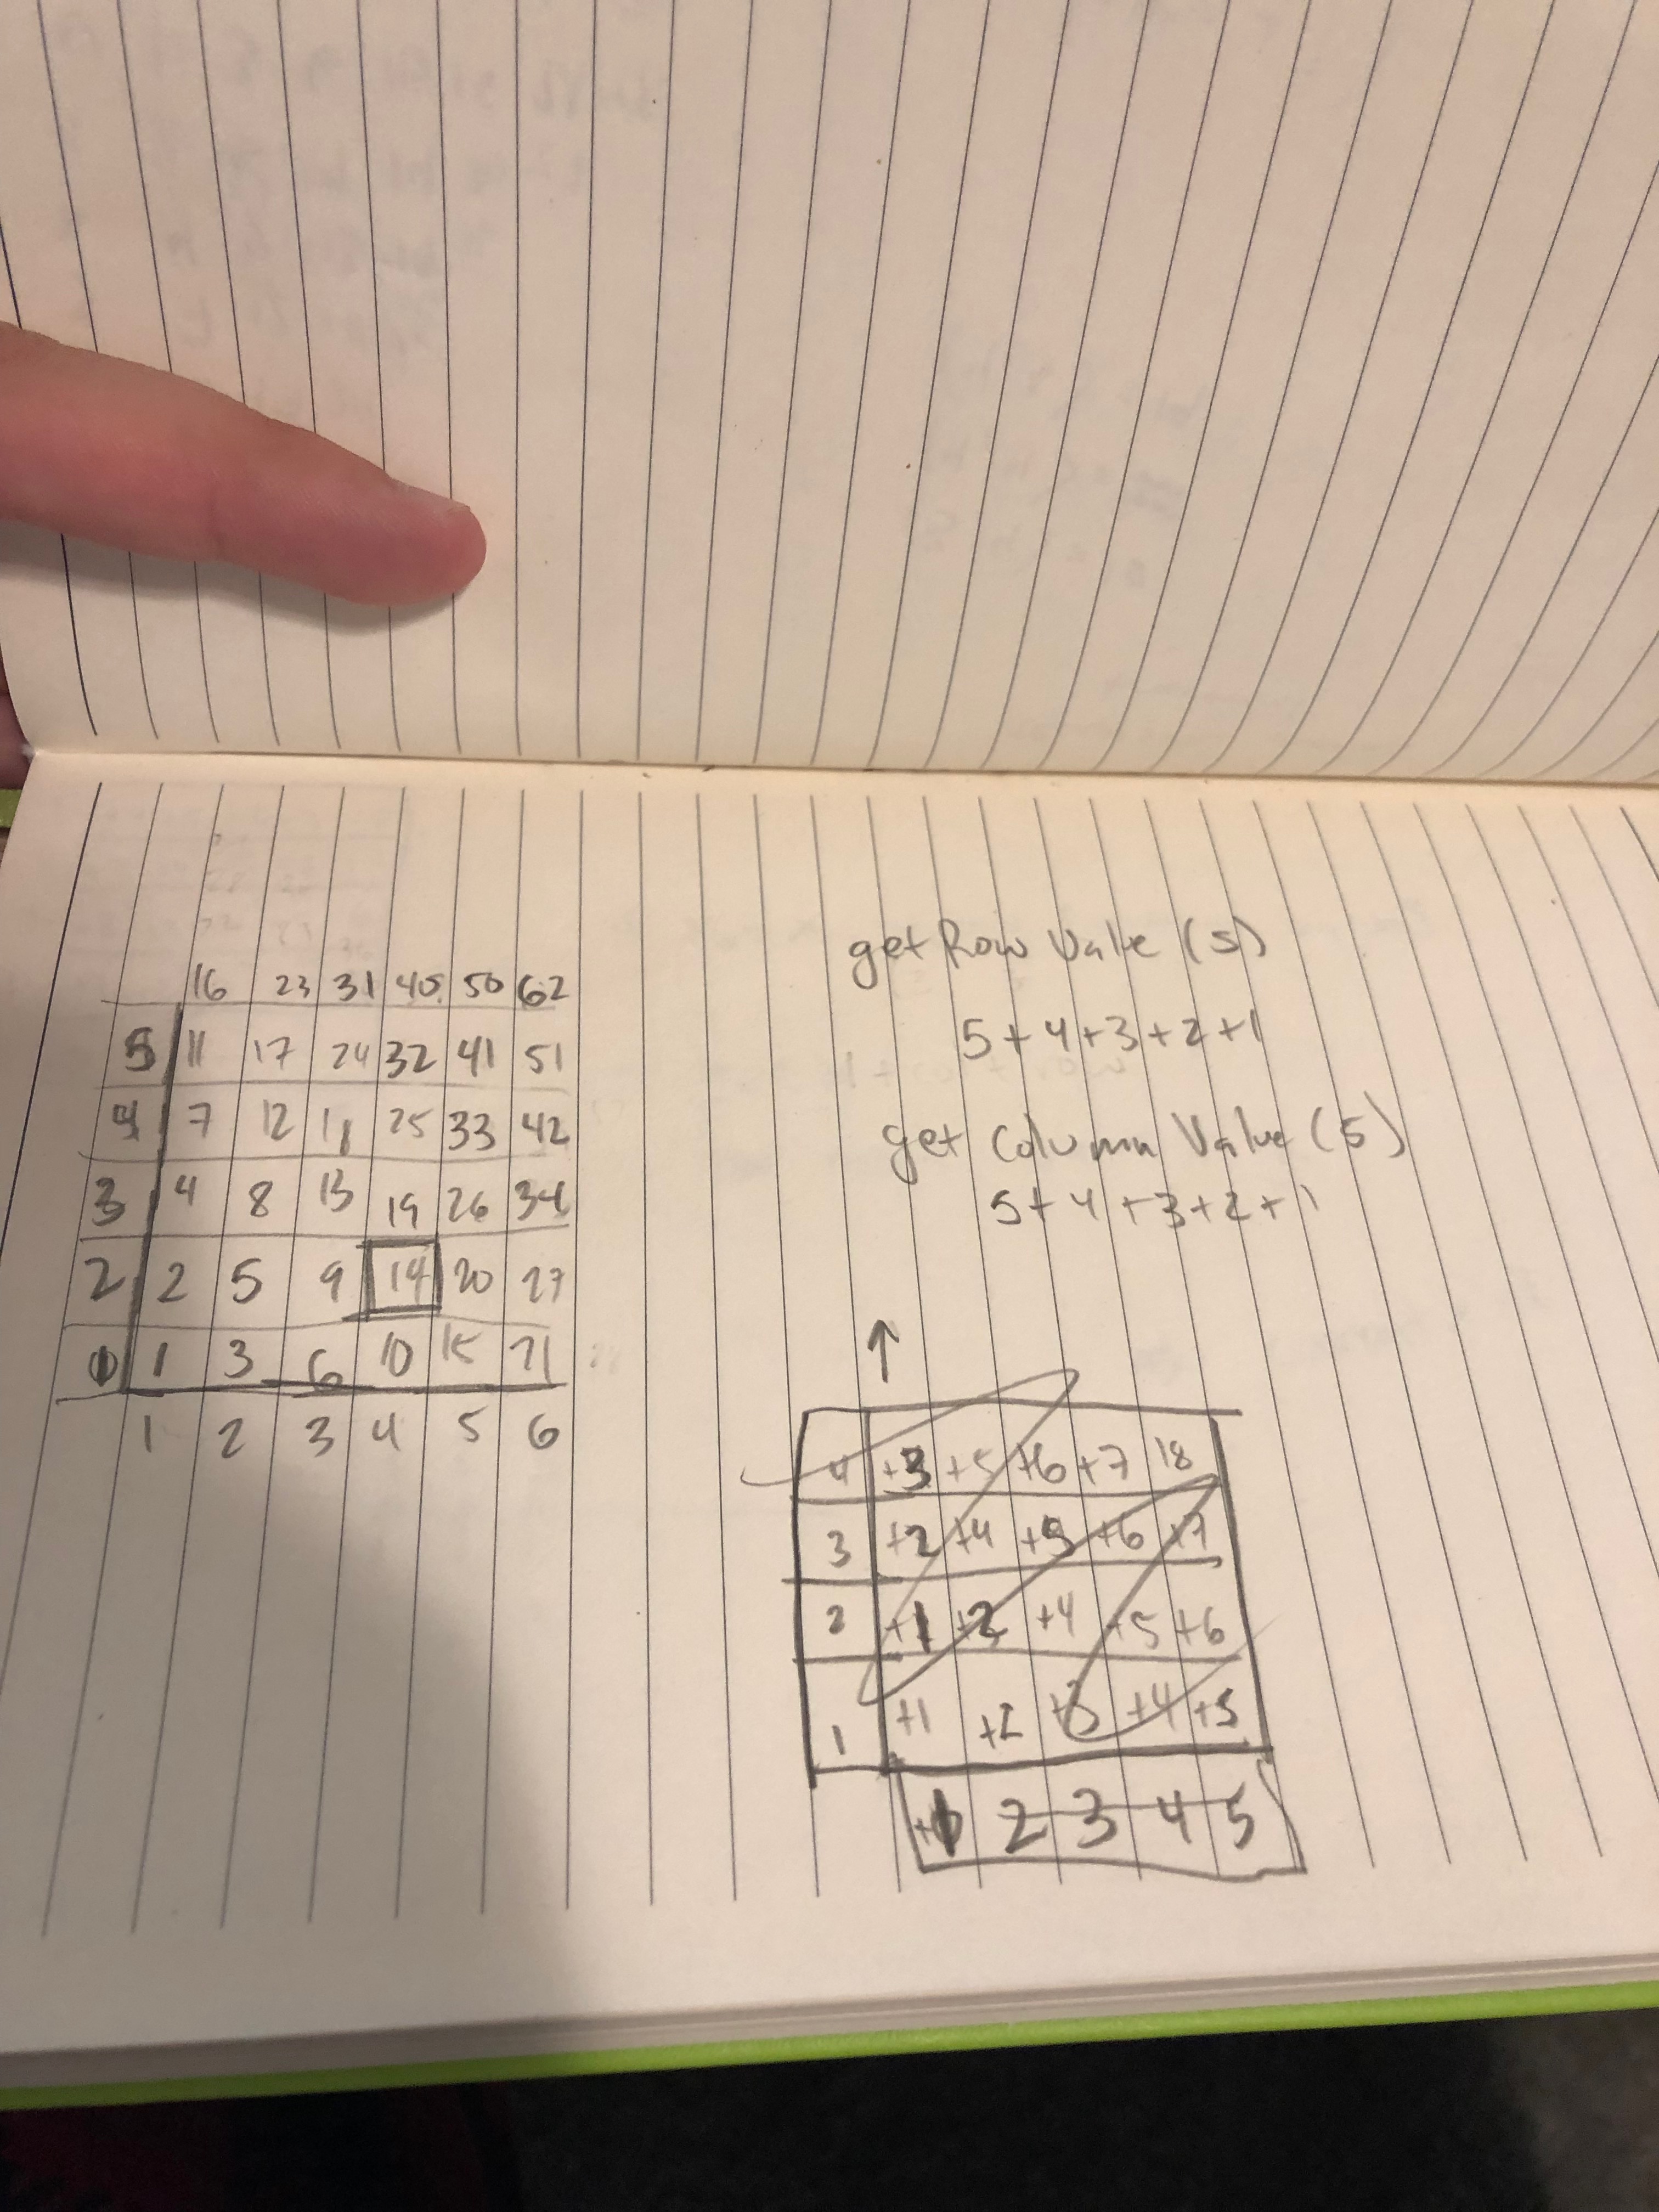 16 23 31 40 50 62
5 11 17 24 32 41 51
4 7 12 18 25 33 42
3 4 8 13 19 26 34
2 2 5 9 14 20 27
1 1 3 6 10 15 21
1 2 3 4 5 6
get Row Value (5)
5+4+3+2+1
get Column Value (5)
5+4+3+2+1
↑
4 +3 +5 +6 +7 18
3 +2 +4 +5 +6 +7
2 +1 +2 +4 +5 +6
1 +1 +2 +3 +4 +5
2 3 4 5